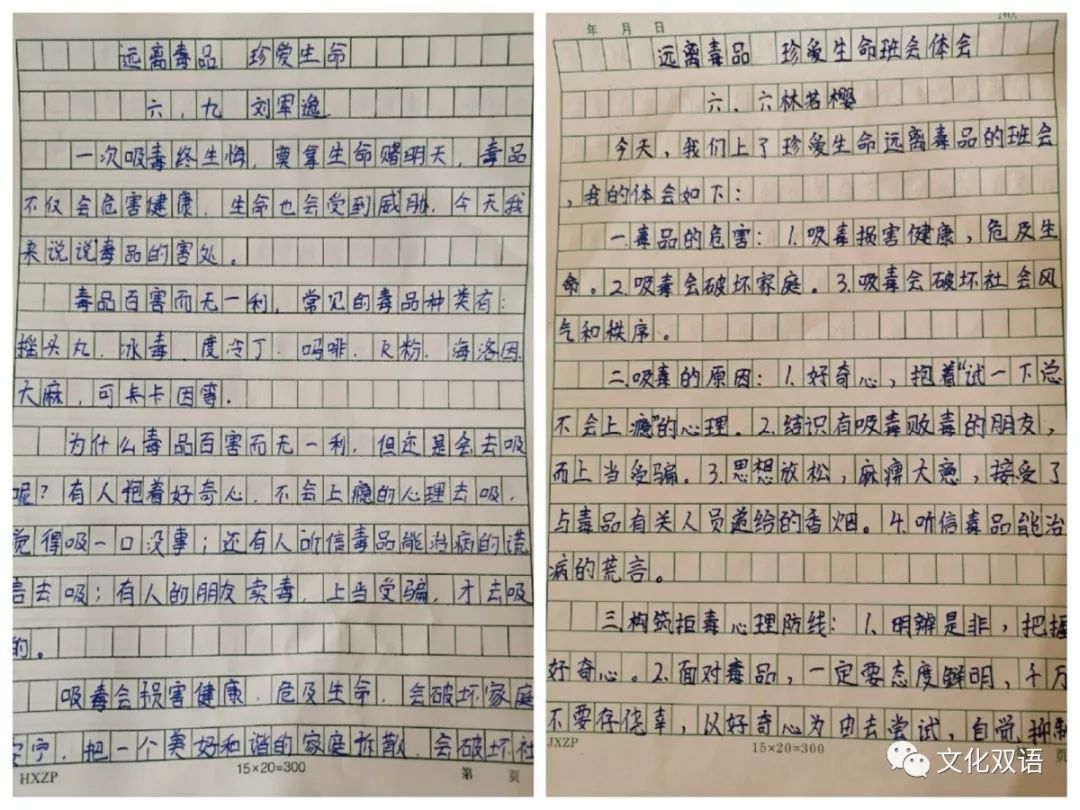 远离毒品 珍爱生命
六、九 刘军逸
一次吸毒终生悔，莫拿生命赌明天，毒品
不仅会危害健康，生命也会受到威胁，今天我
来说说毒品的害处。
毒品百害而无一利，常见的毒品种类有：
摇头丸、冰毒、度冷丁、吗啡、K粉、海洛因
大麻，可卡卡因等．
为什么毒品百害而无一利，但还是会去吸
呢？有人抱着好奇心，不会上瘾的心理去吸，
觉得吸一口没事；还有人听信毒品能治病的谎
言去吸；有人的朋友卖毒，上当受骗，才去吸
的。
吸毒会损害健康，危及生命，会破坏家庭
安宁，把一个美好和谐的家庭拆散，会破坏社
HXZP 15×20=300 第 页
年 月 日 No.
远离毒品 珍爱生命班会体会
六、六林若樱
今天，我们上了珍爱生命远离毒品的班会
，我的体会如下：
一.毒品的危害：1.吸毒损害健康，危及生
命。2.吸毒会破坏家庭。3.吸毒会破坏社会风
气和秩序。
二.吸毒的原因：1.好奇心，抱着“试一下总
不会上瘾”的心理。2.结识有吸毒贩毒的朋友，
而上当受骗。3.思想放松，麻痹大意，接受了
与毒品有关人员递给的香烟。4.听信毒品能治
病的荒言。
三.构筑拒毒心理防线：1.明辨是非，把握
好奇心。2.面对毒品，一定要态度鲜明，千万
不要存侥幸，以好奇心为由去尝试，自觉抑制
JXZP 15×20=300 页
文化双语